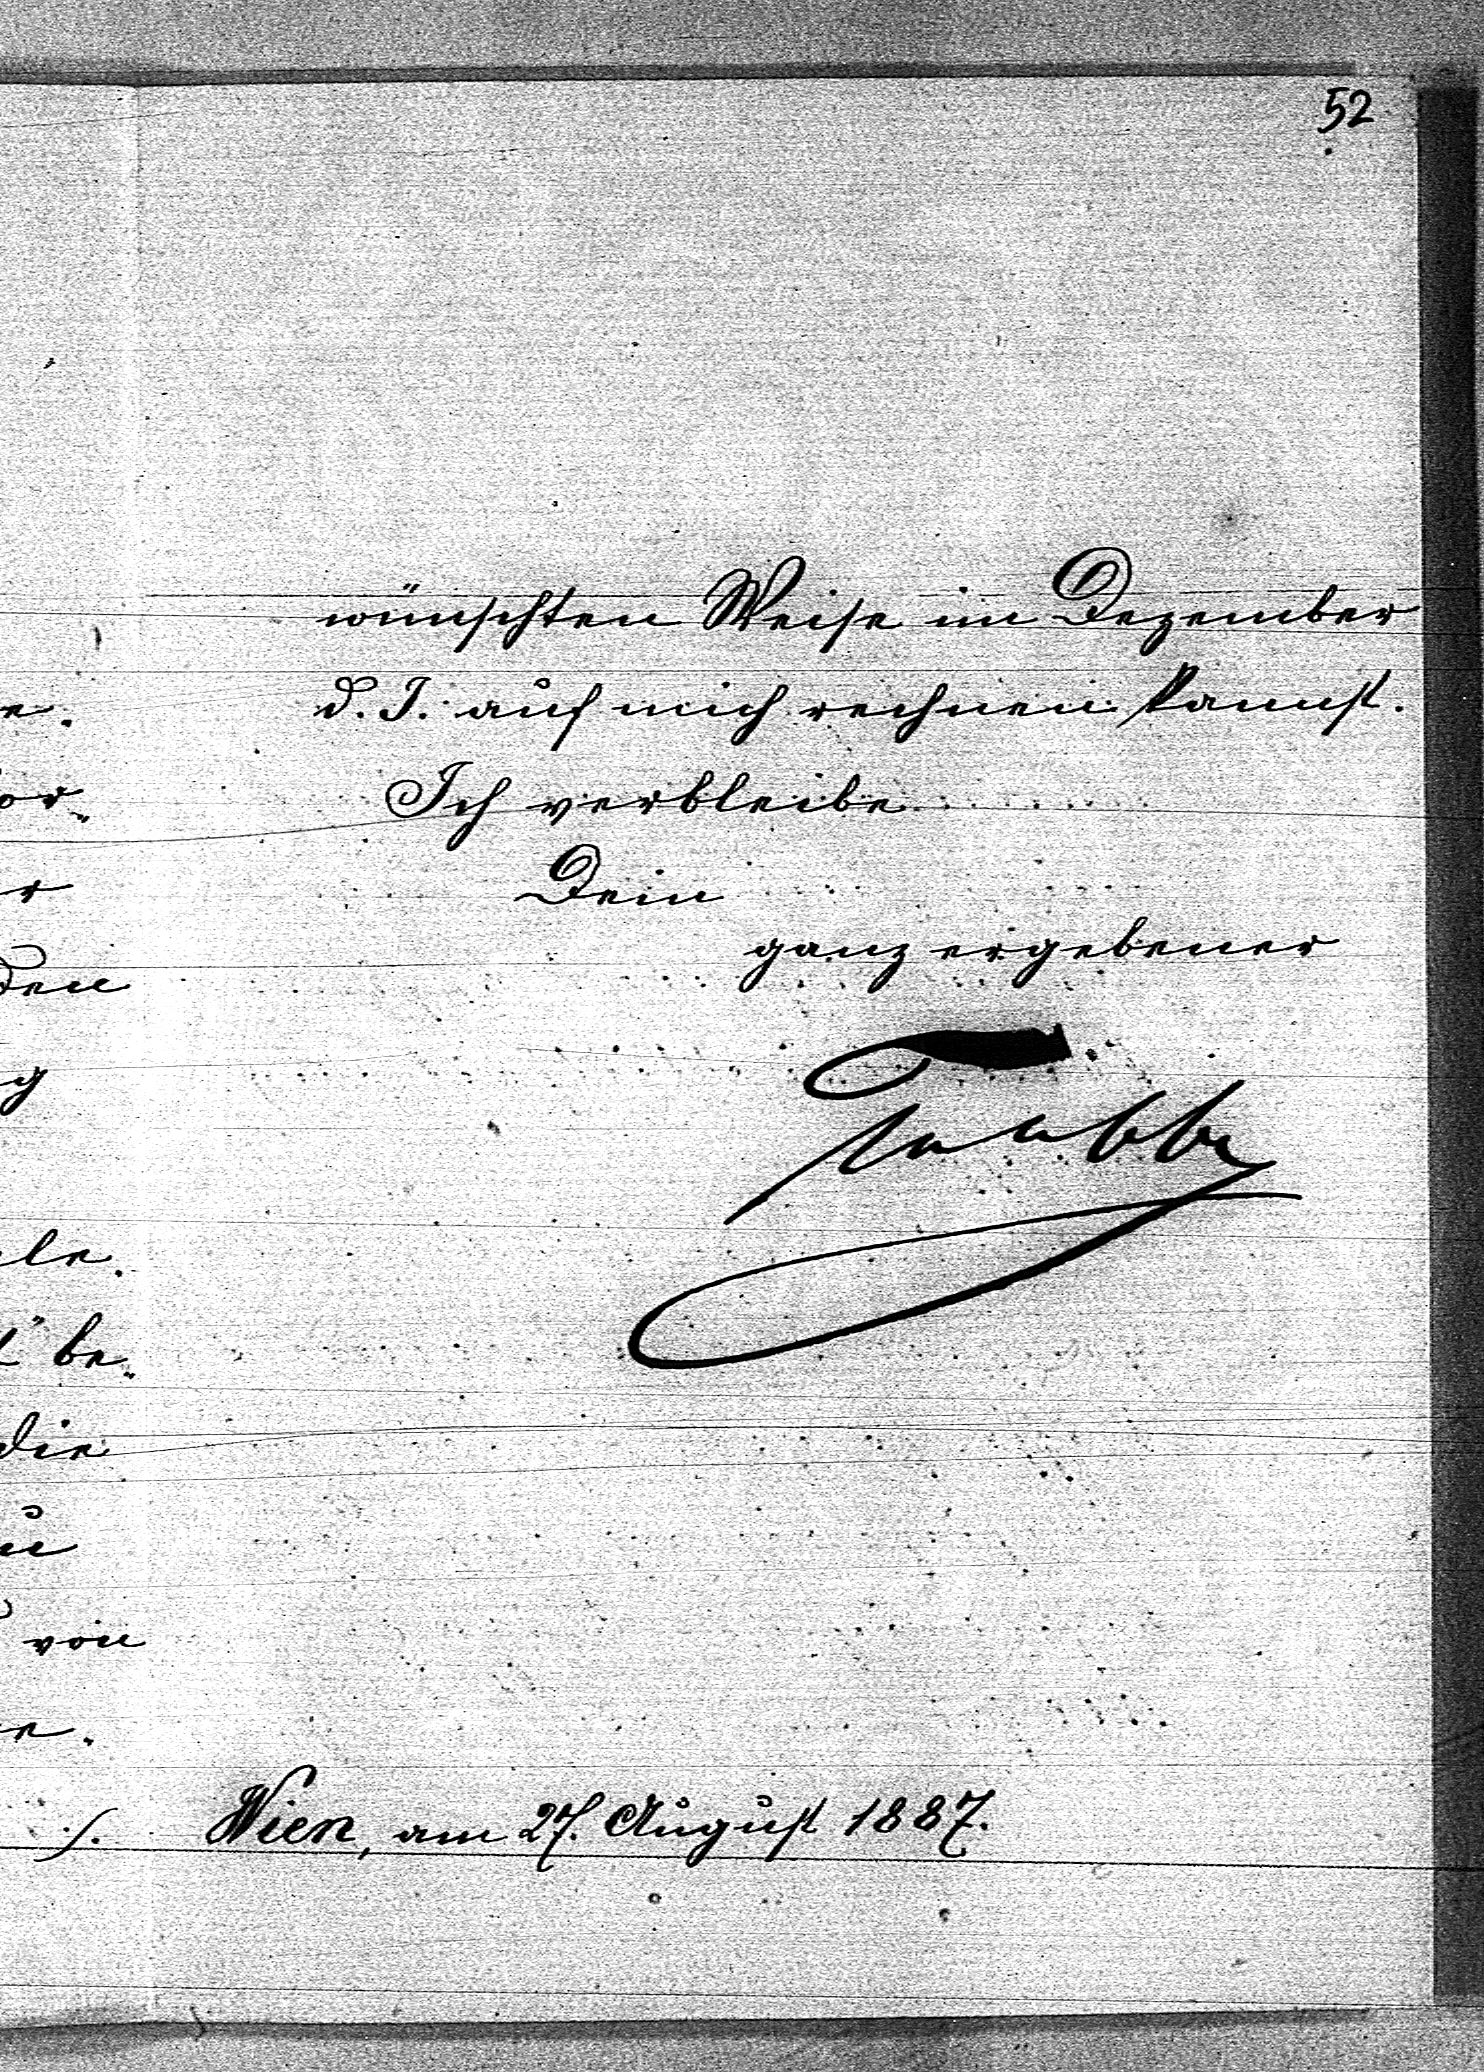 52
wünschten Weise im Dezember
d. J. auf mich rechnen kannst.
Ich verbleibe
Dein
ganz ergebener
Wien, am 27. August 1887.
e.
or
r
den
g
le.
be
die
u
von
e.
./.